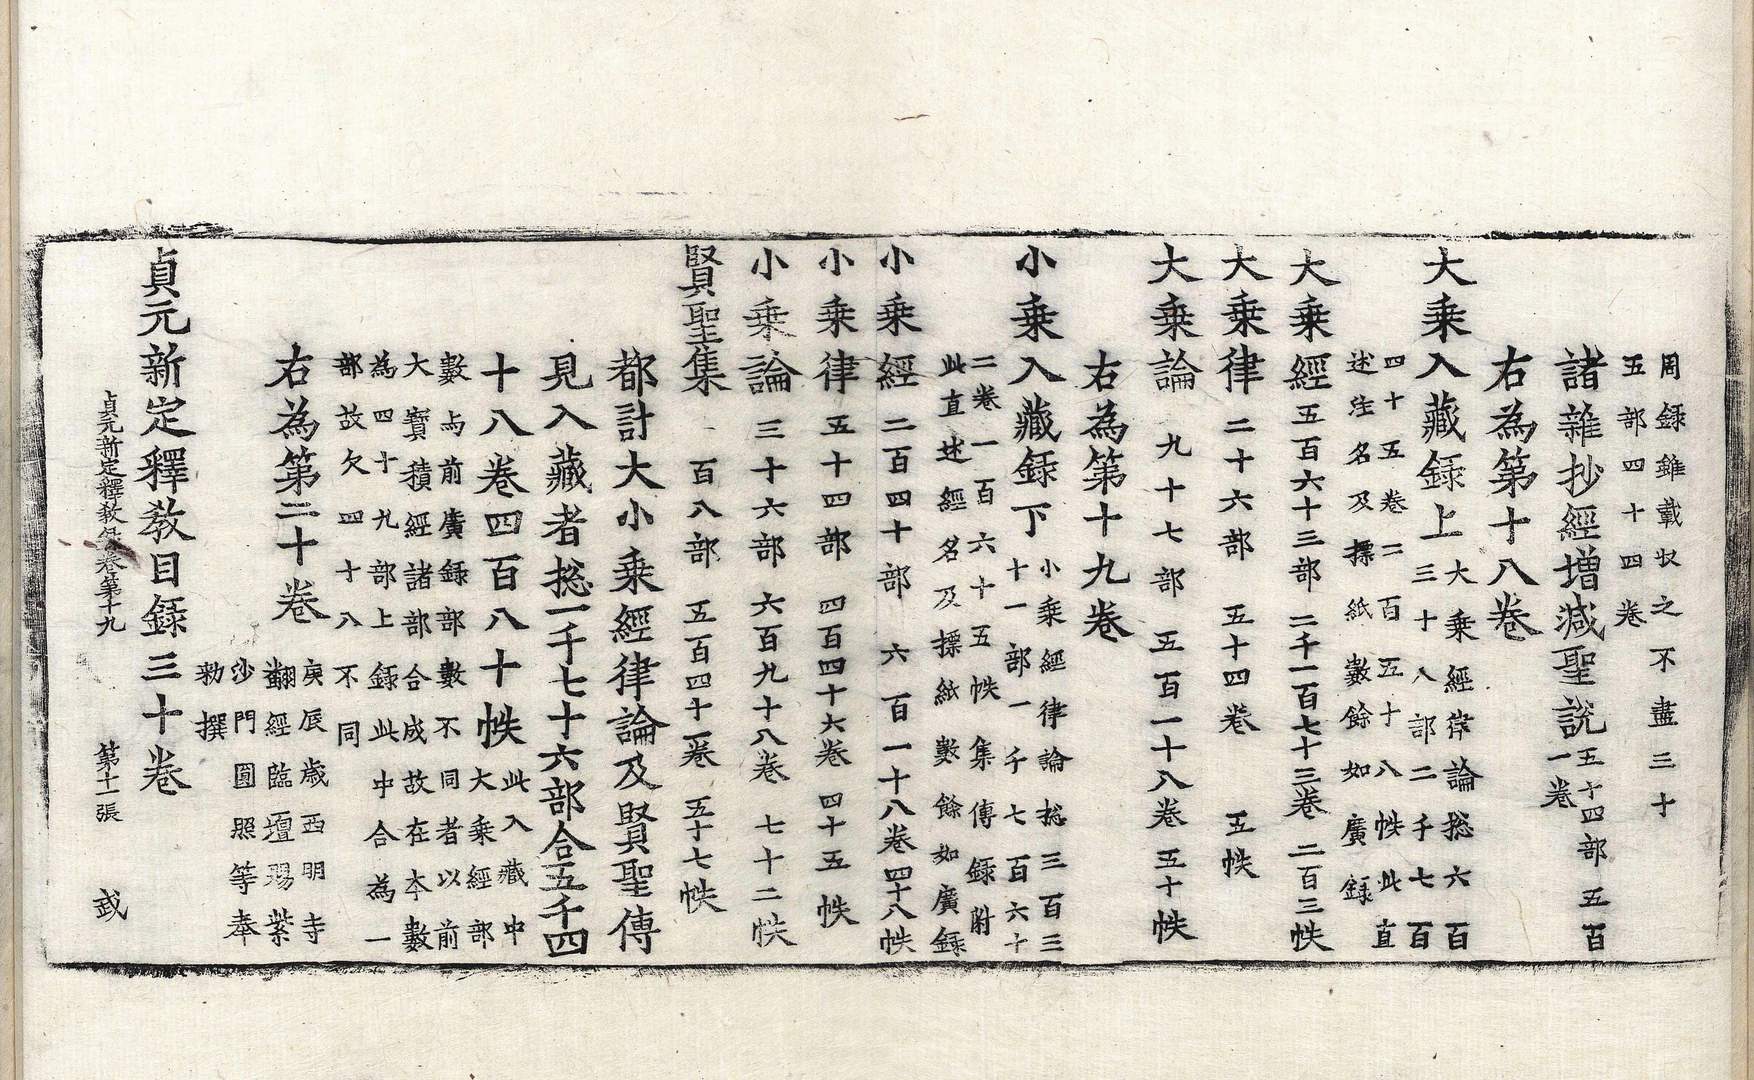 周録雖載収之不盡三十
五部四十四卷
諸雜抄經增減聖說五十四部五百
一卷
右為第十八卷
大乗入藏録上大乗經律論捴六百
三十八部二千七百
四十五卷二百五十八帙此直
述注名及摽紙數餘如廣録
大乗經五百六十三部二千一百七十三卷二百三帙
大乗律二十六部五十四卷五帙
大乗論九十七部五百一十八卷五十帙
右為第十九卷
小乗入藏録下小乗經律論捴三百三
十一部一千七百六十
二卷一百六十五帙集傳録附
此直述經名及摽紙數餘如廣録
小乗經二百四十部六百一十八卷四十八帙
小乗律五十四部四百四十六卷四十五帙
小乗論三十六部六百九十八卷七十二帙
賢聖集百八部五百四十一卷五十七帙
都計大小乗經律論及賢聖傳
見入藏者捴一千七十六部合五千四
十八卷四百八十帙此入藏中
大乗經部
數与前廣録部數不同者以前
大寶積經諸部合成故在本數
為四十九部上録此中合為一
部故欠四十八不同
右為第二十卷
庚辰歳西明寺
翻經臨壇賜紫
沙門圓照等奉
勑撰
貞元新定釋教目録三十卷
貞元新定釋教目卷第十九 第十一張 㦯